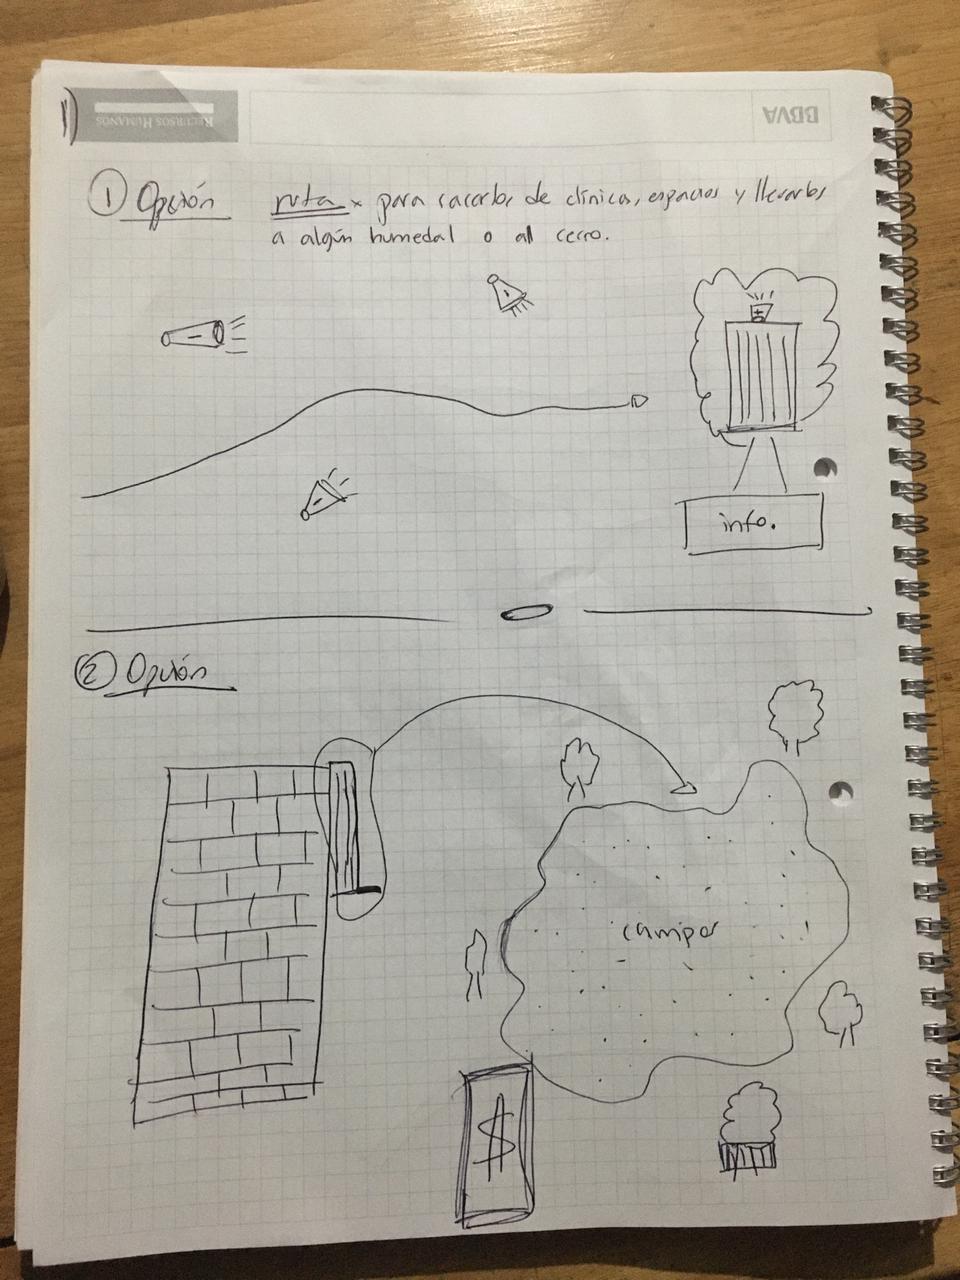 RECURSOS HUMANOS
BBVA
① Opción
ruta x para sacarlos de clínica, espacios y llevarlos
a algún humedal o al cerro.
info.
② Opción
campos
$